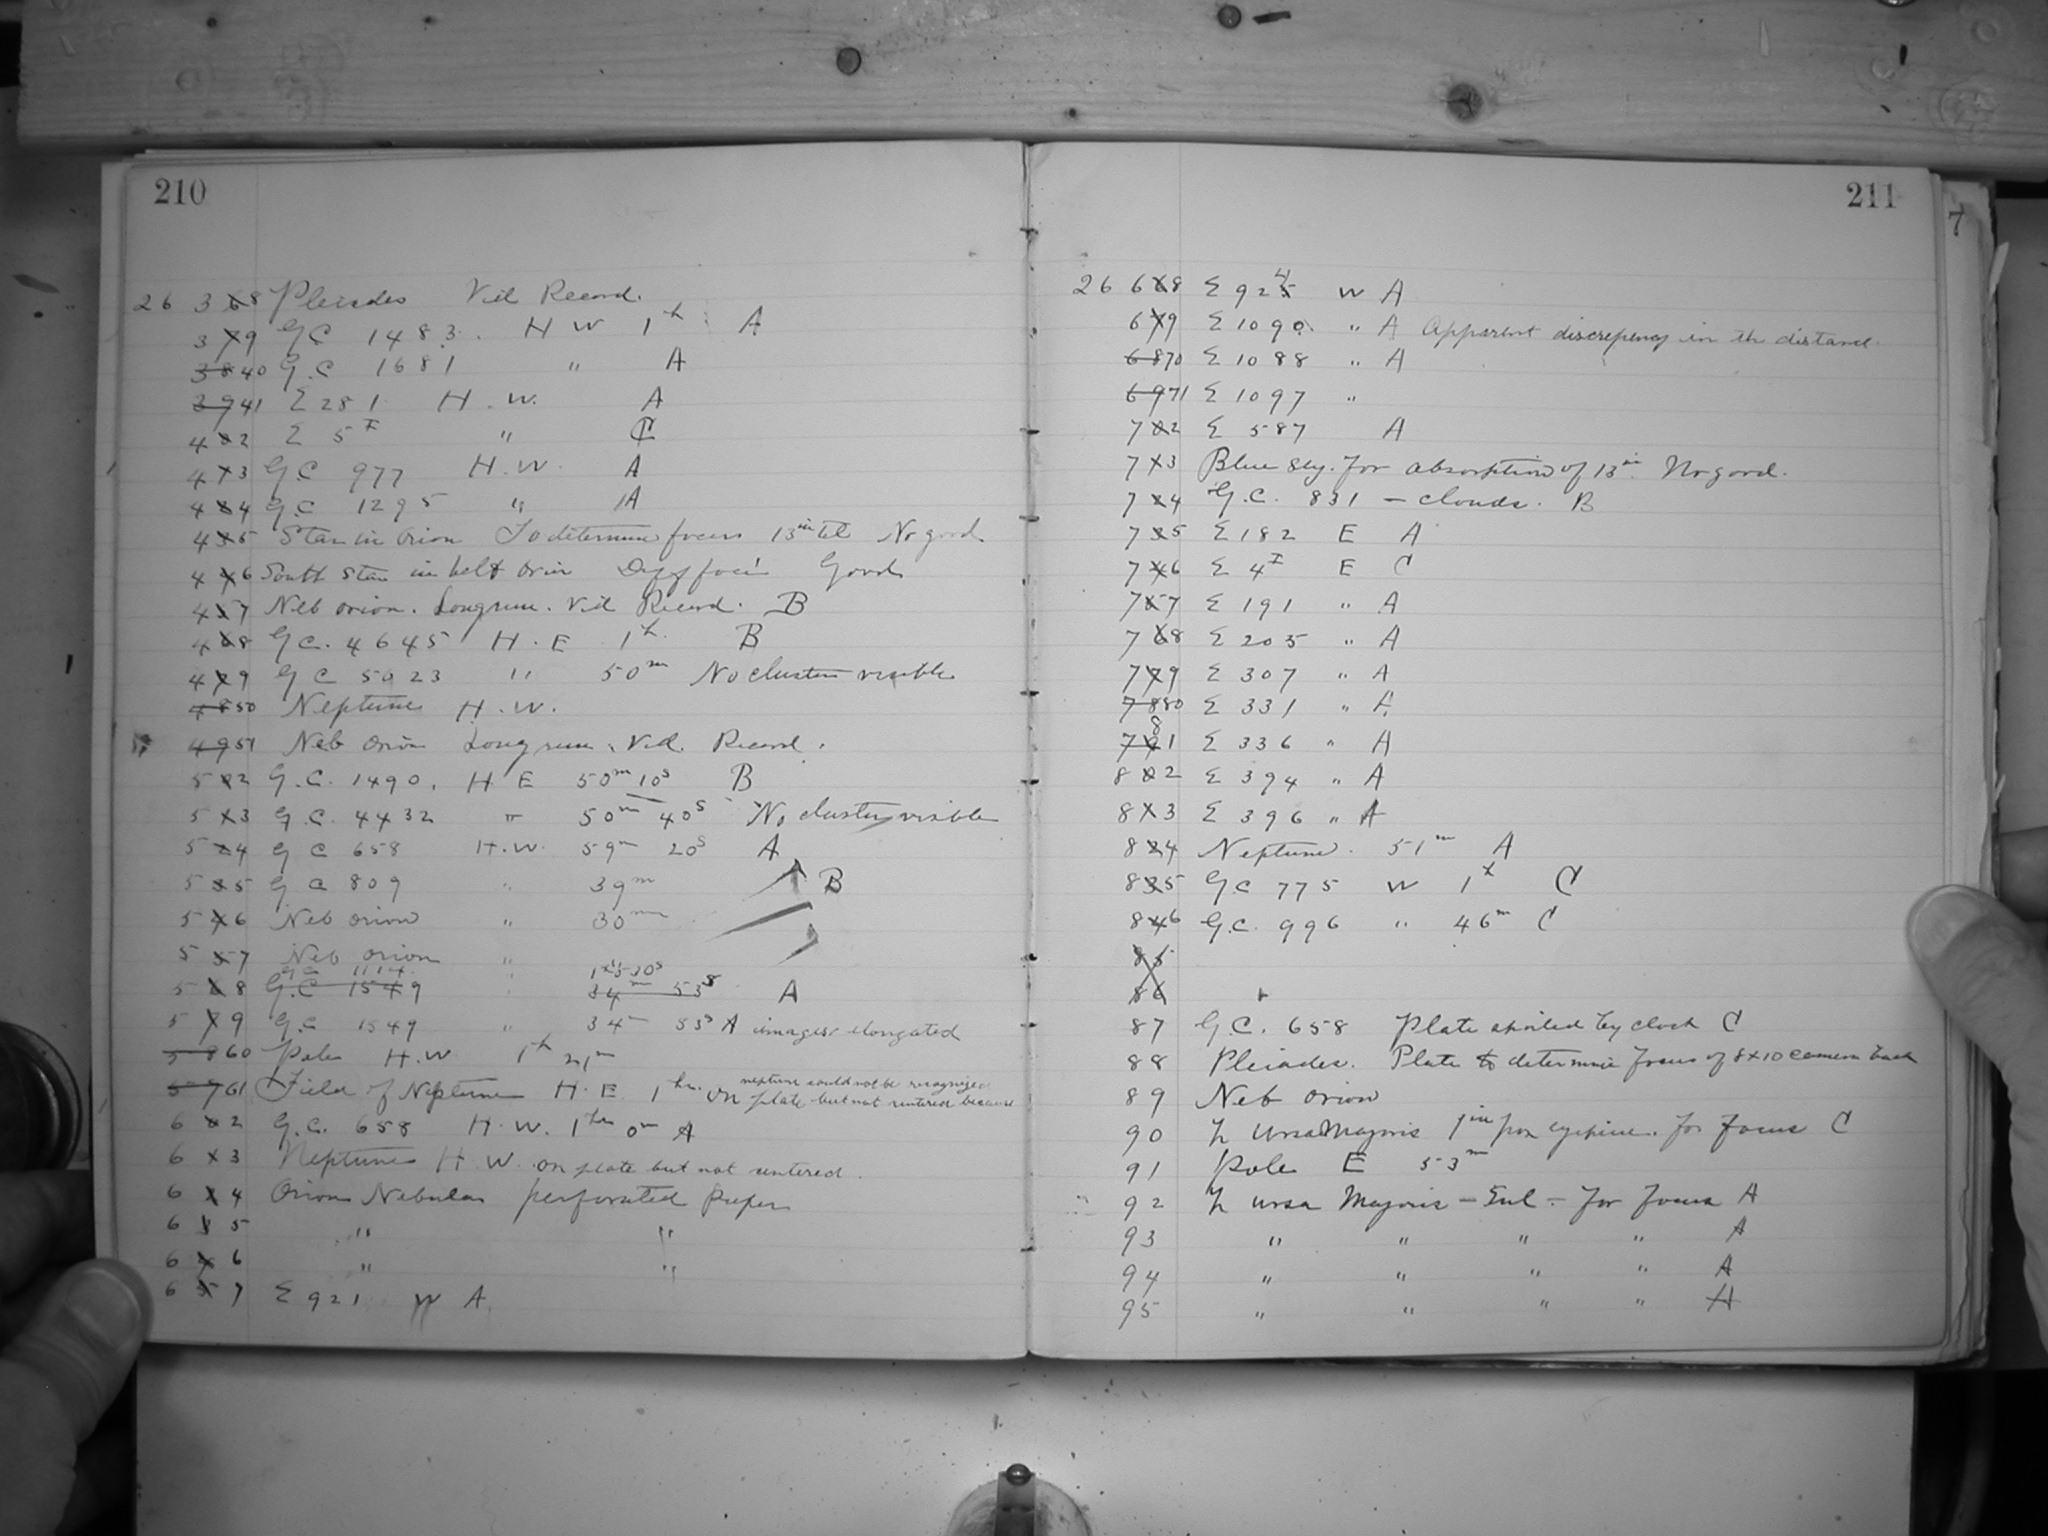 210
26 3 8 Pleiades Vid Record.
3 9 G.C 1483. H W 1h A
3840 G.C 1681 " A
3941 Σ 281 H.W. A
4 2 Σ 5 I " C
4 3 G C 977 H.W. A
4 4 G.C 1295 " A
4 5 Star in Orion To determine focus 13 in tel No good
4 6 South Star in belt Orion Diff foci Good
4 7 Neb Orion. Long run. Vid Record. B
4 8 G.C. 4645 H.E 1h. B
4 9 G C 5023 " 50m No cluster visible
4850 Neptune H.W.
4951 Neb Orion Long run. Vid. Record.
5 2 G.C. 1490. H E 50m 10s B
5 3 G.C. 4432 " 50m 40s No cluster visible
5 4 G C 658 H.W. 59m 20s A
5 5 G C 809 " 39m B
5 6 Neb Orion " 30m
5 7 Neb Orion "
G.C 1114
5 8 G.C 1549 " 34m 53s A
5 9 G.C 1549 " 34m 53s A images elongated
5860 Pole H.W. 1h 21m
5961 Field of Neptune H.E. 1hr. on plate but not entered because neptune could not be recognized
6 2 G.C. 658 H.W. 1hr 0m A
6 3 Neptune H W. on plate but not entered.
6 4 Orion Nebula perforated paper
6 5 " "
6 6 " "
6 7 Σ 921 W A
211
7
26 6 8 Σ 924 W A
6 9 Σ 1090. " A Apparent discrepency in the distance.
6870 Σ 1088 " A
6971 Σ 1097 "
7 2 Σ 587 A
7 3 Blue sky. for absorption of 13 in. No good.
7 4 G.C. 831 - clouds. B
7 5 Σ 182 E A
7 6 Σ 4 I E C
7 7 Σ 191 " A
7 8 Σ 203 " A
7 9 Σ 307 " A
7880 Σ 331 " A
8 1 Σ 336 " A
8 2 Σ 394 " A
8 3 Σ 396 " A
8 4 Neptune. 51m A
8 5 G.C 775 W 1h C
8 6 G.C. 996 " 46m C
85
86
87 G.C. 658 Plate spoiled by clock C
88 Pleiades. Plate to determine focus of 8x10 camera back
89 Neb Orion
90 Ursa Majoris 1in eyepiece. for focus C
91 Pole E 53m
92 Ursa Majoris - Enl - for focus A
93 " " " " A
94 " " " " A
95 " " " " A